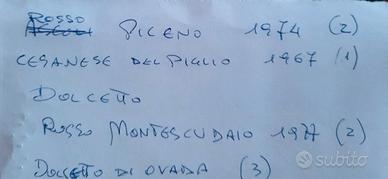 ROSSO
ASCOLI PICENO 1974 (2)
CESANESE DEL PIGLIO 1967 (1)
DOLCETTO
ROSSO MONTESCUDAIO 1977 (2)
DOLCETTO DI OVADA (3)
subito